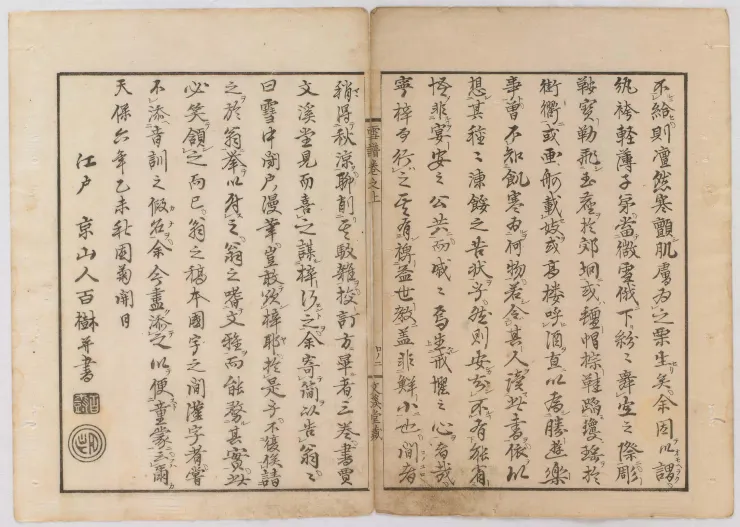 不給則凛然寒顫肌膚為之栗生矣余因以謂
紈袴軽薄子弟當微雪俄下紛々舞空之際彫
鞍宝勒飛玉塵於郊坰或氊帽棕鞋蹈瓊瑶於
街衢或画舸載妓或高楼呼酒直以為勝遊楽
事曽不知飢寒為何物若令其人讀此書依以
想其種々凍餒之苦状乎然則安知不有能省
非宴安之公共而戚々焉生戒懼之心者哉
寧梓而行之其有裨益世教蓋非鮮小也間者
雪譜巻之上
文溪堂蔵
稍得秋涼聊削其駁雑校訂方畢者三巻書賈
文溪堂見而喜之謀梓行之余寄簡以告翁々
曰雪中閉戸漫筆豈敢欲梓耶於是乎不復俟請
之於翁挙以附之翁之嗜文雅而能務其實此
必笑領之而已翁之稿本國字之間漢字者嘗
不添音訓之假名余今盡添之以便童蒙云爾
天保六年乙未秋園菊開日
江戸 京山人百樹并書